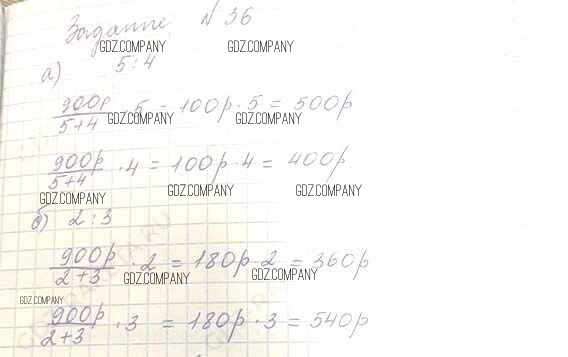 Задание № 36
GDZ.COMPANY GDZ.COMPANY
а) 5:4
900р/5+4 · 5 = 100р · 5 = 500р
GDZ.COMPANY GDZ.COMPANY
900р/5+4 · 4 = 100р · 4 = 400р
GDZ.COMPANY GDZ.COMPANY GDZ.COMPANY
б) 2:3
900р/2+3 · 2 = 180р · 2 = 360р
GDZ.COMPANY GDZ.COMPANY
GDZ.COMPANY
900р/2+3 · 3 = 180р · 3 = 540р